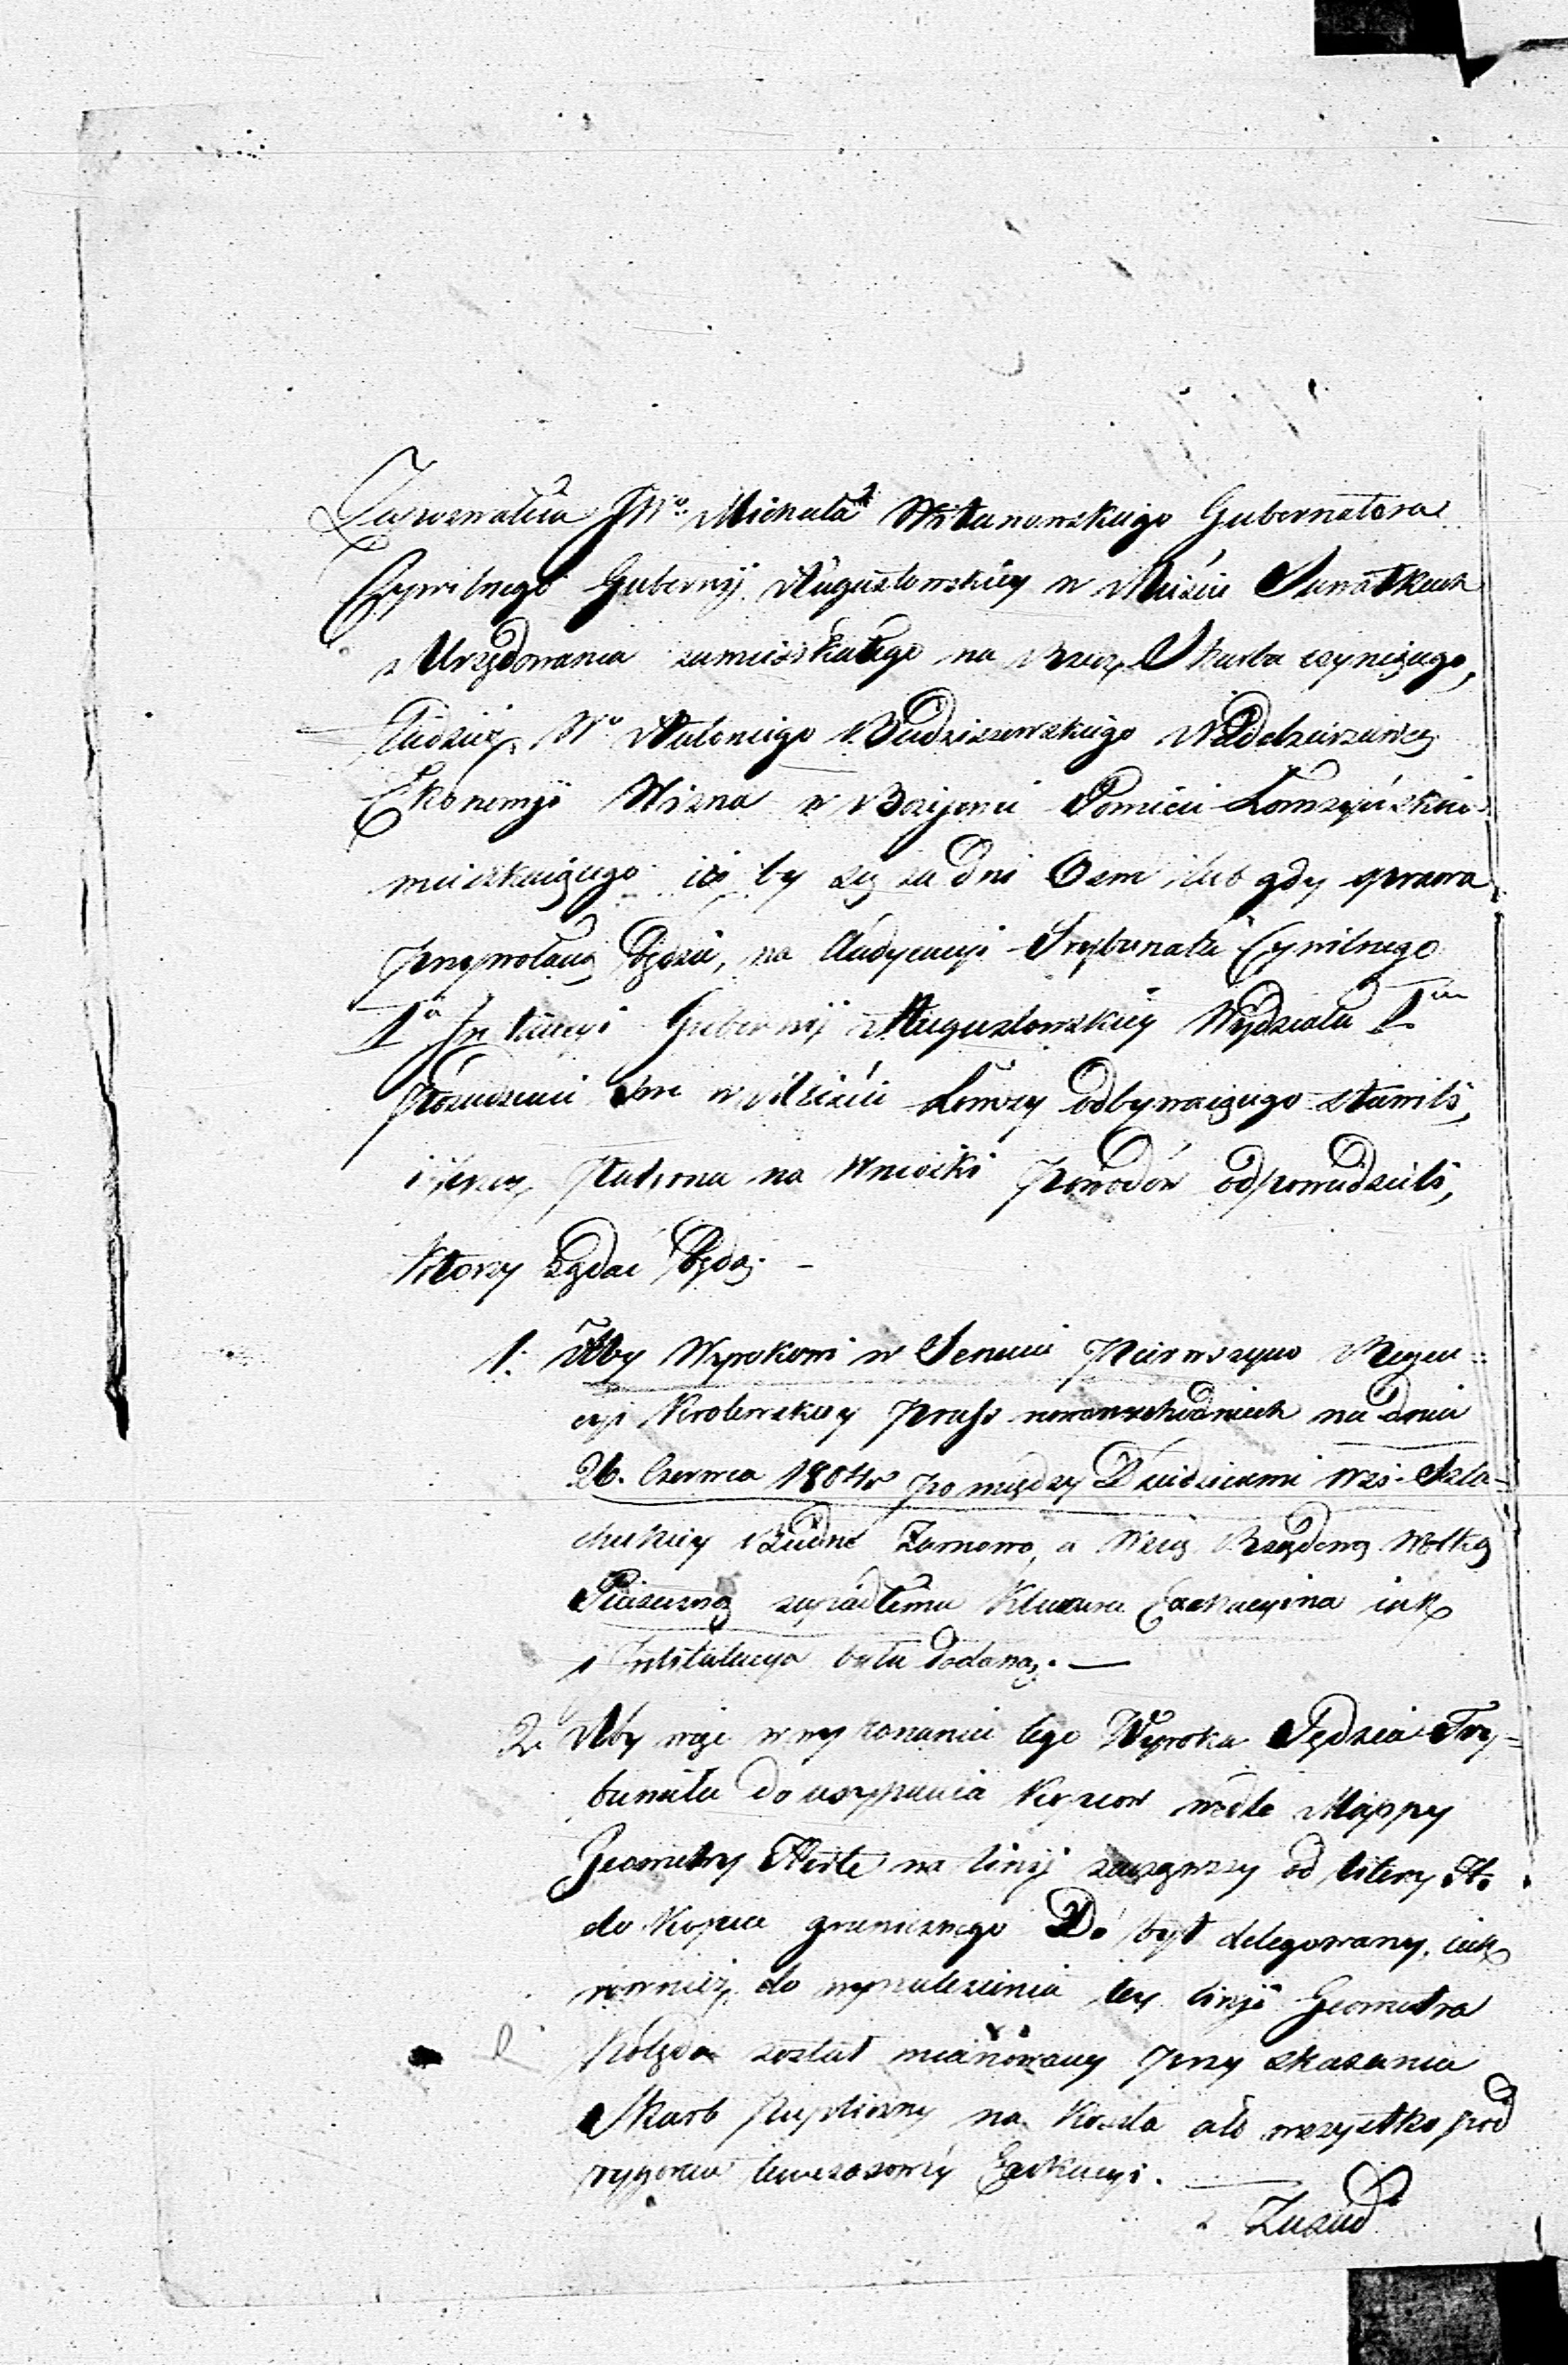 Zapozwałem JWo Michała Wiłanowskiego Gubernatora
Cywilnego Gubernij Augustowskiey w Mieście Suwałkach
z Urzędowania zamieszkałego na Rzecz Skarbu czyniącego,
Tudzież Wo Antoniego Budziszewskiego Naddzierżawcę
Ekonomji Wizna w Bożejewie Powiecie Łomżyńskim
mieszkaiącego iż by się za dni Osm lub gdy sprawa
przywołaną będzie, na Audyencyi Trybunału Cywilnego
1o Instancyi Gubernij Augustowskiey Wydziału 1go
posiedzenie swe w Mieście Łomży odbywaiącego stawili,
i przez Patrona na Wnioski Powodów odpowiedzieli,
Którzy żądać będą. —
1. Aby Wyrokowi w Senacie Pierwszym Regen=
cyi Krolewskiey Pruss nowowschodnich na dniu
26. Czerwca 1804r pomiędzy Dziedzicami wsi Szla-
checkiey Budne Żarnowo, a Wsią Rządową Wólką
Piaseczną zapadłemu Klauzura Exekucyina iak
i Intitulacya była dodaną. —
2. Aby w wykonaniu tego Wyroku Sędzia Try=
bunału do usypania Kopców wedle Mappy
Geometry na linij zacząwszy od litery
do Kopca granicznego D. był delegowany, iak
rownież do wynalezienia tey linji Geometra
Kolęda został mianowany przy skazaniu
Skarb Publiczny na Koszta a to wszystko pod
rygorem tymczasowéy Exekucyi. —
Zasad